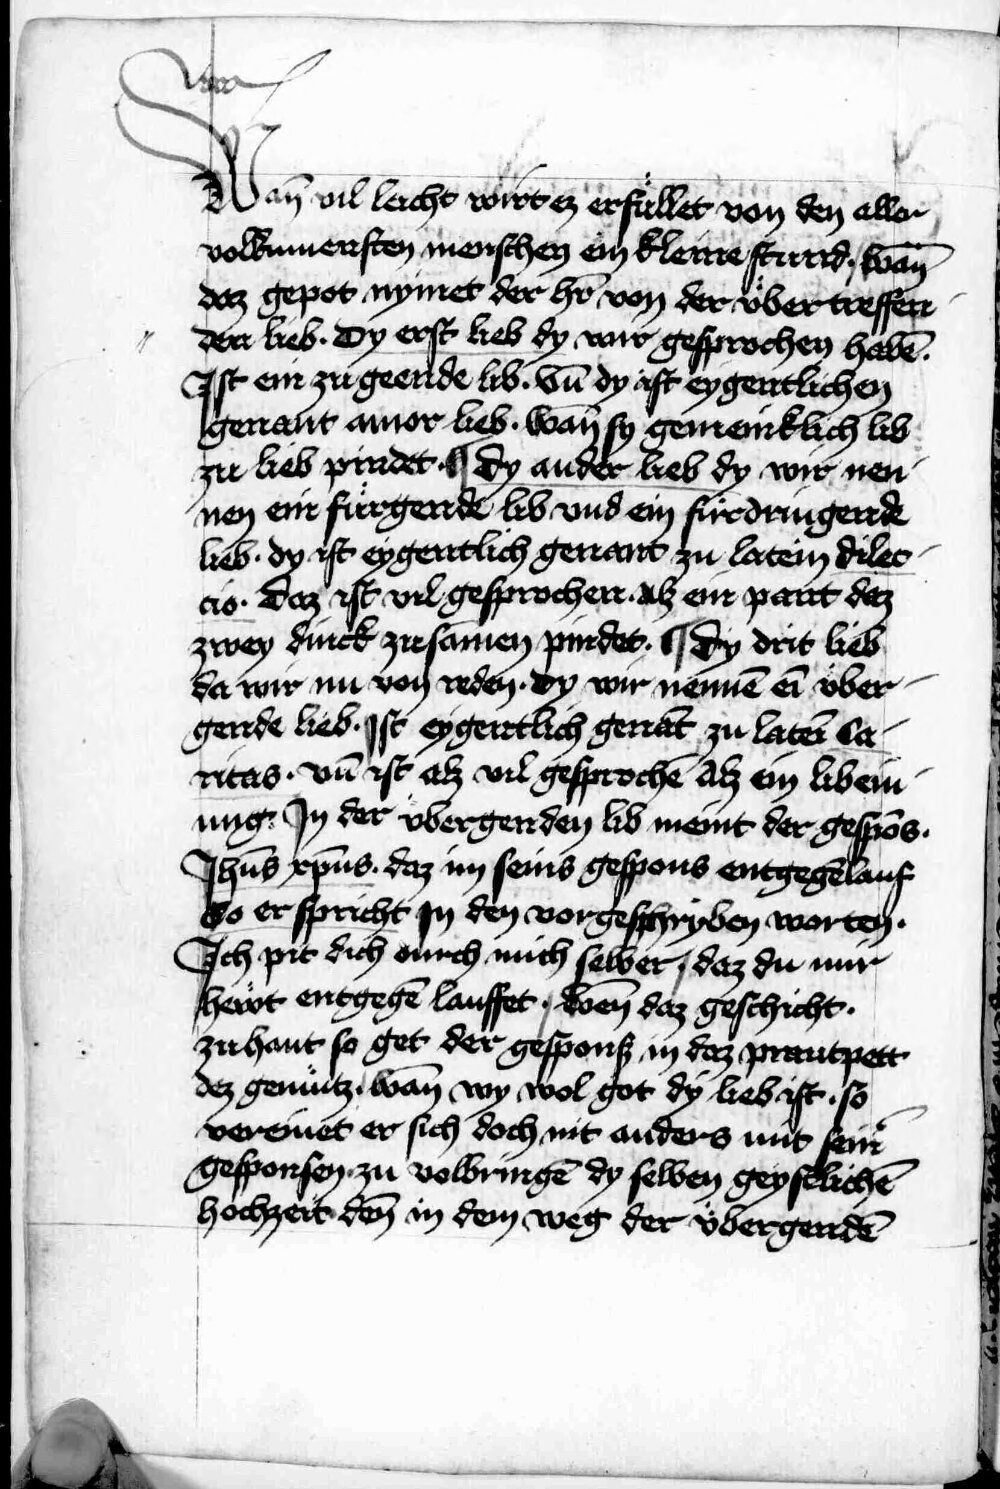 Wañ vil leicht wirt ez erfüllet von den aller
volkumensten menschen ein kleine stund. wañ
daz gepot nymet der hr̄ von der v̈ber treffen
den lieb. Dy erst lieb dy wir gesprochen habē.
Ist ein zugeende lib. Vn̄ dy ist eygentlichen
genant amor lieb. wañ sy gemeinklich lib
zu lieb pindet. ¶ Dy ander lieb dy wir nen
nen ein fürgende lib vnd ein fürdringende
lieb. dy ist eygentlich genant zu latein dilec
cio. Daz ist vil gesprochen. Alz ein pant daz
zwey dinck zusamen pindet. ¶ Dy drit lieb
da wir nu von reden. Dy wir nennē eī v̈ber
gende lieb. Ist eygentlich genāt zu lateī Ca
ritas. vn̄ ist alz vil gesprochē Alz ein lib ein
ung. In der v̈bergenden lib meint der gespōs.
Jhūs xp̄us. daz im seins gespons entgegēlauf
So er spricht In den vorgeschryben worten.
Ich pit dich durch mich selber / daz du mir
hewt entgegē lauffet. / Wen̄ daz geschicht.
zuhant so get der gesponß in daz prautpett
dez gemütz. wañ wy wol got dy lieb ist. so
vereinet er sich doch nit anders mit seinr
gesponsen zu volbringē dy selben geystlichē
hochzeit den̄ in dem weg der v̈bergendē